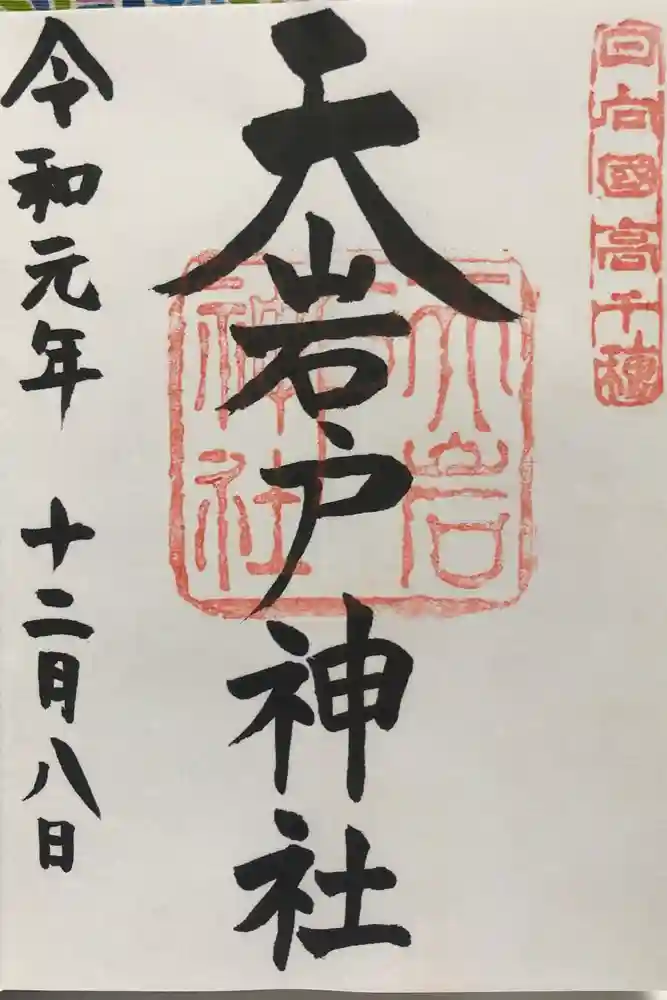 日向國高千穂
天岩戸神社
天岩戸神社
令和元年 十二月八日